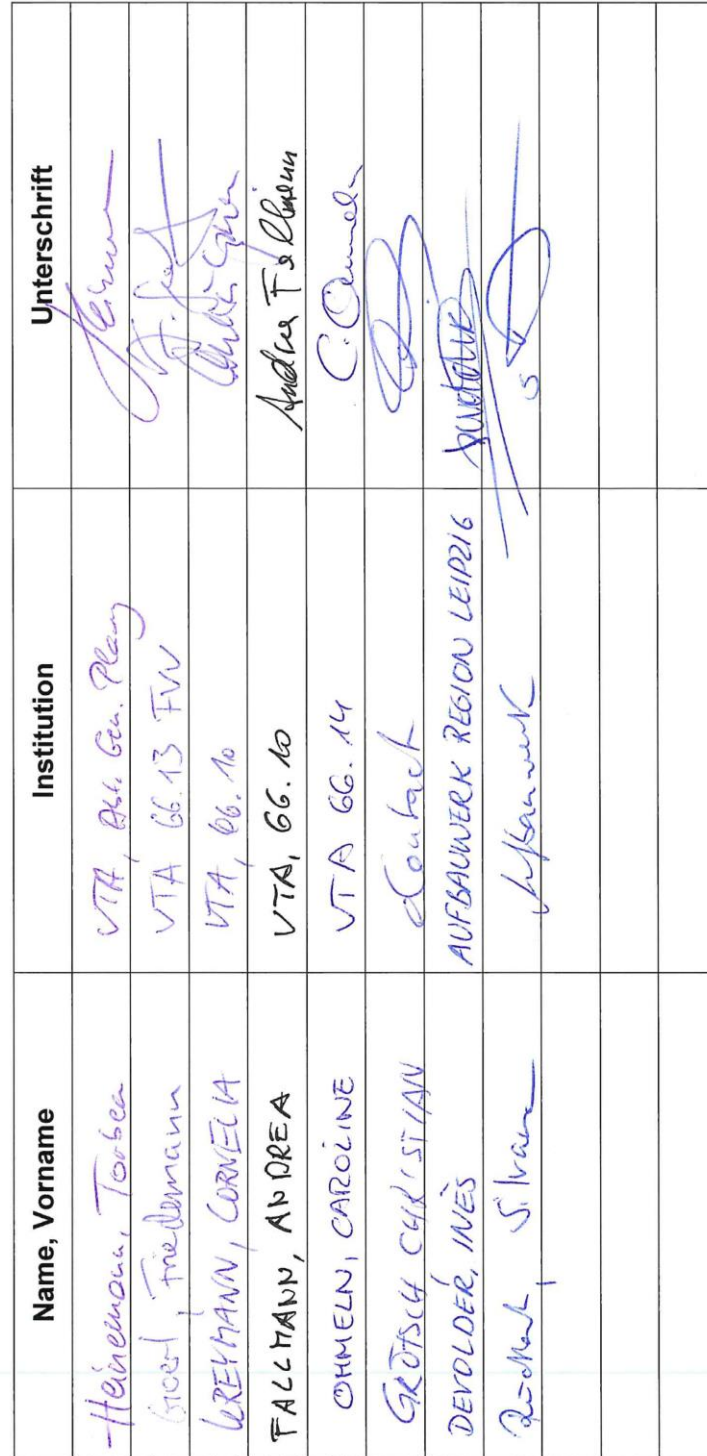 Name, Vorname Institution Unterschrift
Heinemann, Torben VTA, Abt. Gen. Plang
Goerl, Friedemann VTA 66.13 FVV
KREYMANN, CORNELIA VTA, 66.10
FALLMANN, ANDREA VTA, 66.10 Andrea Fallmann
OHMELN, CAROLINE VTA 66.14 C. Ohmeln
GRÖTSCH CHRISTIAN
DEVOLDER, INÈS AUFBAUWERK REGION LEIPZIG
Silvana Aufbauwerk